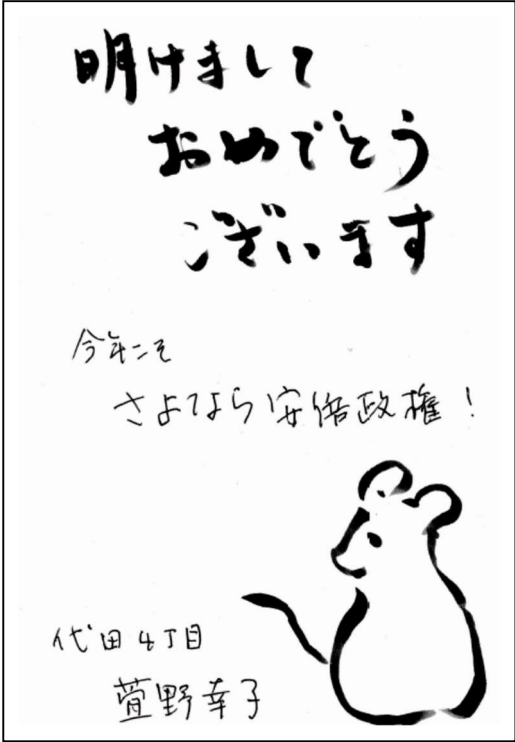 明けまして
おめでとう
ございます
今年こそ
さよなら安倍政権!
代田4丁目
萱野幸子